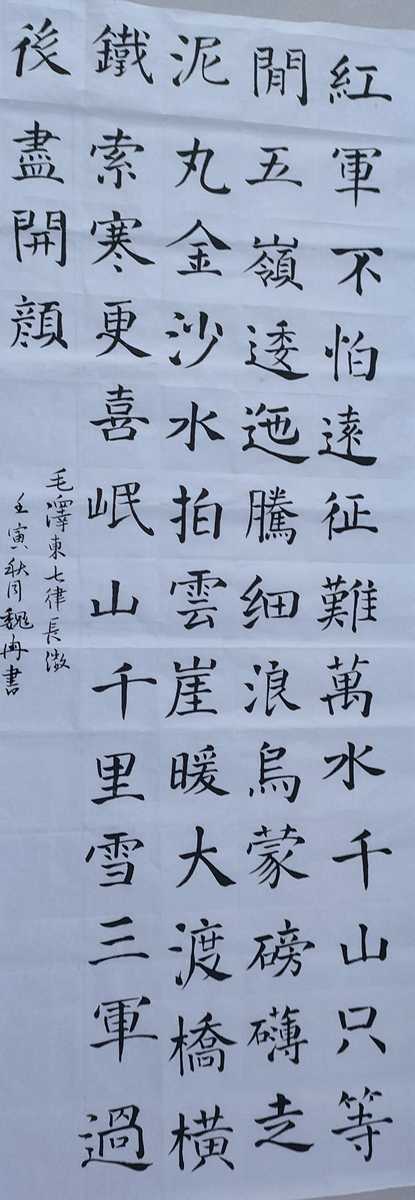 紅軍不怕遠征難萬水千山只等
閒五嶺逶迤騰細浪烏蒙磅礴走
泥丸金沙水拍雲崖暖大渡橋橫
鐵索寒更喜岷山千里雪三軍過
後盡開顔
毛澤東七律長徵
壬寅秋月魏冉書